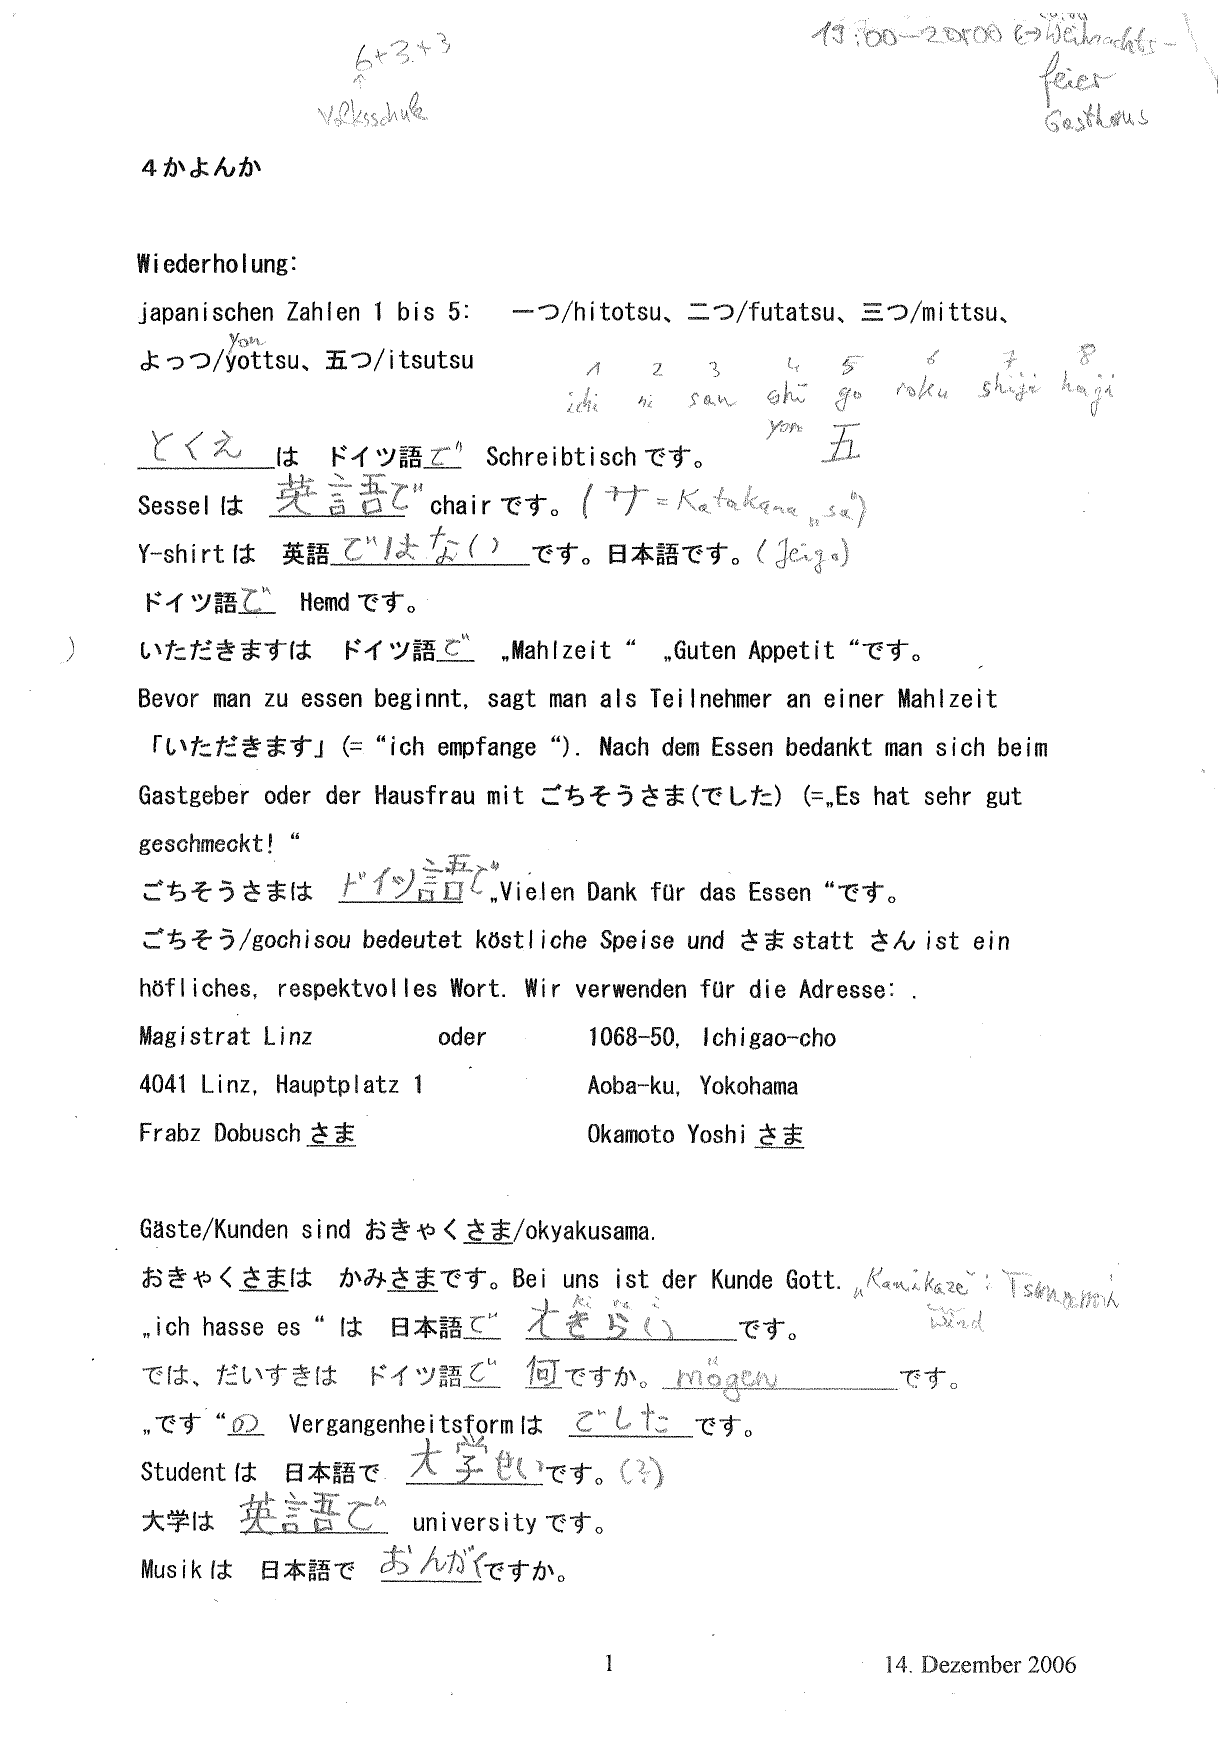 6+3+3
Volksschule
19:00–20:00 Weihnachts-
feier
Gasthaus
4かよんか
Wiederholung:
japanischen Zahlen 1 bis 5: 一つ/hitotsu、二つ/futatsu、三つ/mittsu、
yon
よっつ/yottsu、五つ/itsutsu
1 2 3 4 5 6 7 8
ichi ni san shi go roku shiji haji
yon 五
とくえ は ドイツ語で Schreibtischです。
Sesselは 英語で chairです。(サ=Katakana „sa")
Y-shirtは 英語ではない です。日本語です。(Jeigo)
ドイツ語で Hemdです。
いただきますは ドイツ語で „Mahlzeit “ „Guten Appetit “です。
Bevor man zu essen beginnt, sagt man als Teilnehmer an einer Mahlzeit
「いただきます」(= “ich empfange “). Nach dem Essen bedankt man sich beim
Gastgeber oder der Hausfrau mit ごちそうさま(でした) (=„Es hat sehr gut
geschmeckt! “
ごちそうさまは ドイツ語で „Vielen Dank für das Essen “です。
ごちそう/gochisou bedeutet köstliche Speise und さま statt さん ist ein
höfliches, respektvolles Wort. Wir verwenden für die Adresse: .
Magistrat Linz oder 1068-50, Ichigao-cho
4041 Linz, Hauptplatz 1 Aoba-ku, Yokohama
Frabz Dobusch さま Okamoto Yoshi さま
Gäste/Kunden sind おきゃくさま/okyakusama.
おきゃくさまは かみさまです。Bei uns ist der Kunde Gott. „Kamikaze": Tsunami
Wind
ki ra i
„ich hasse es “ は 日本語で 大きらい です。
では、だいすきは ドイツ語で 何ですか。 mögen です。
„です “の Vergangenheitsformは でした です。
Studentは 日本語で 大学せいです。(?)
大学は 英語で universityです。
Musikは 日本語で おんがくですか。
1
14. Dezember 2006